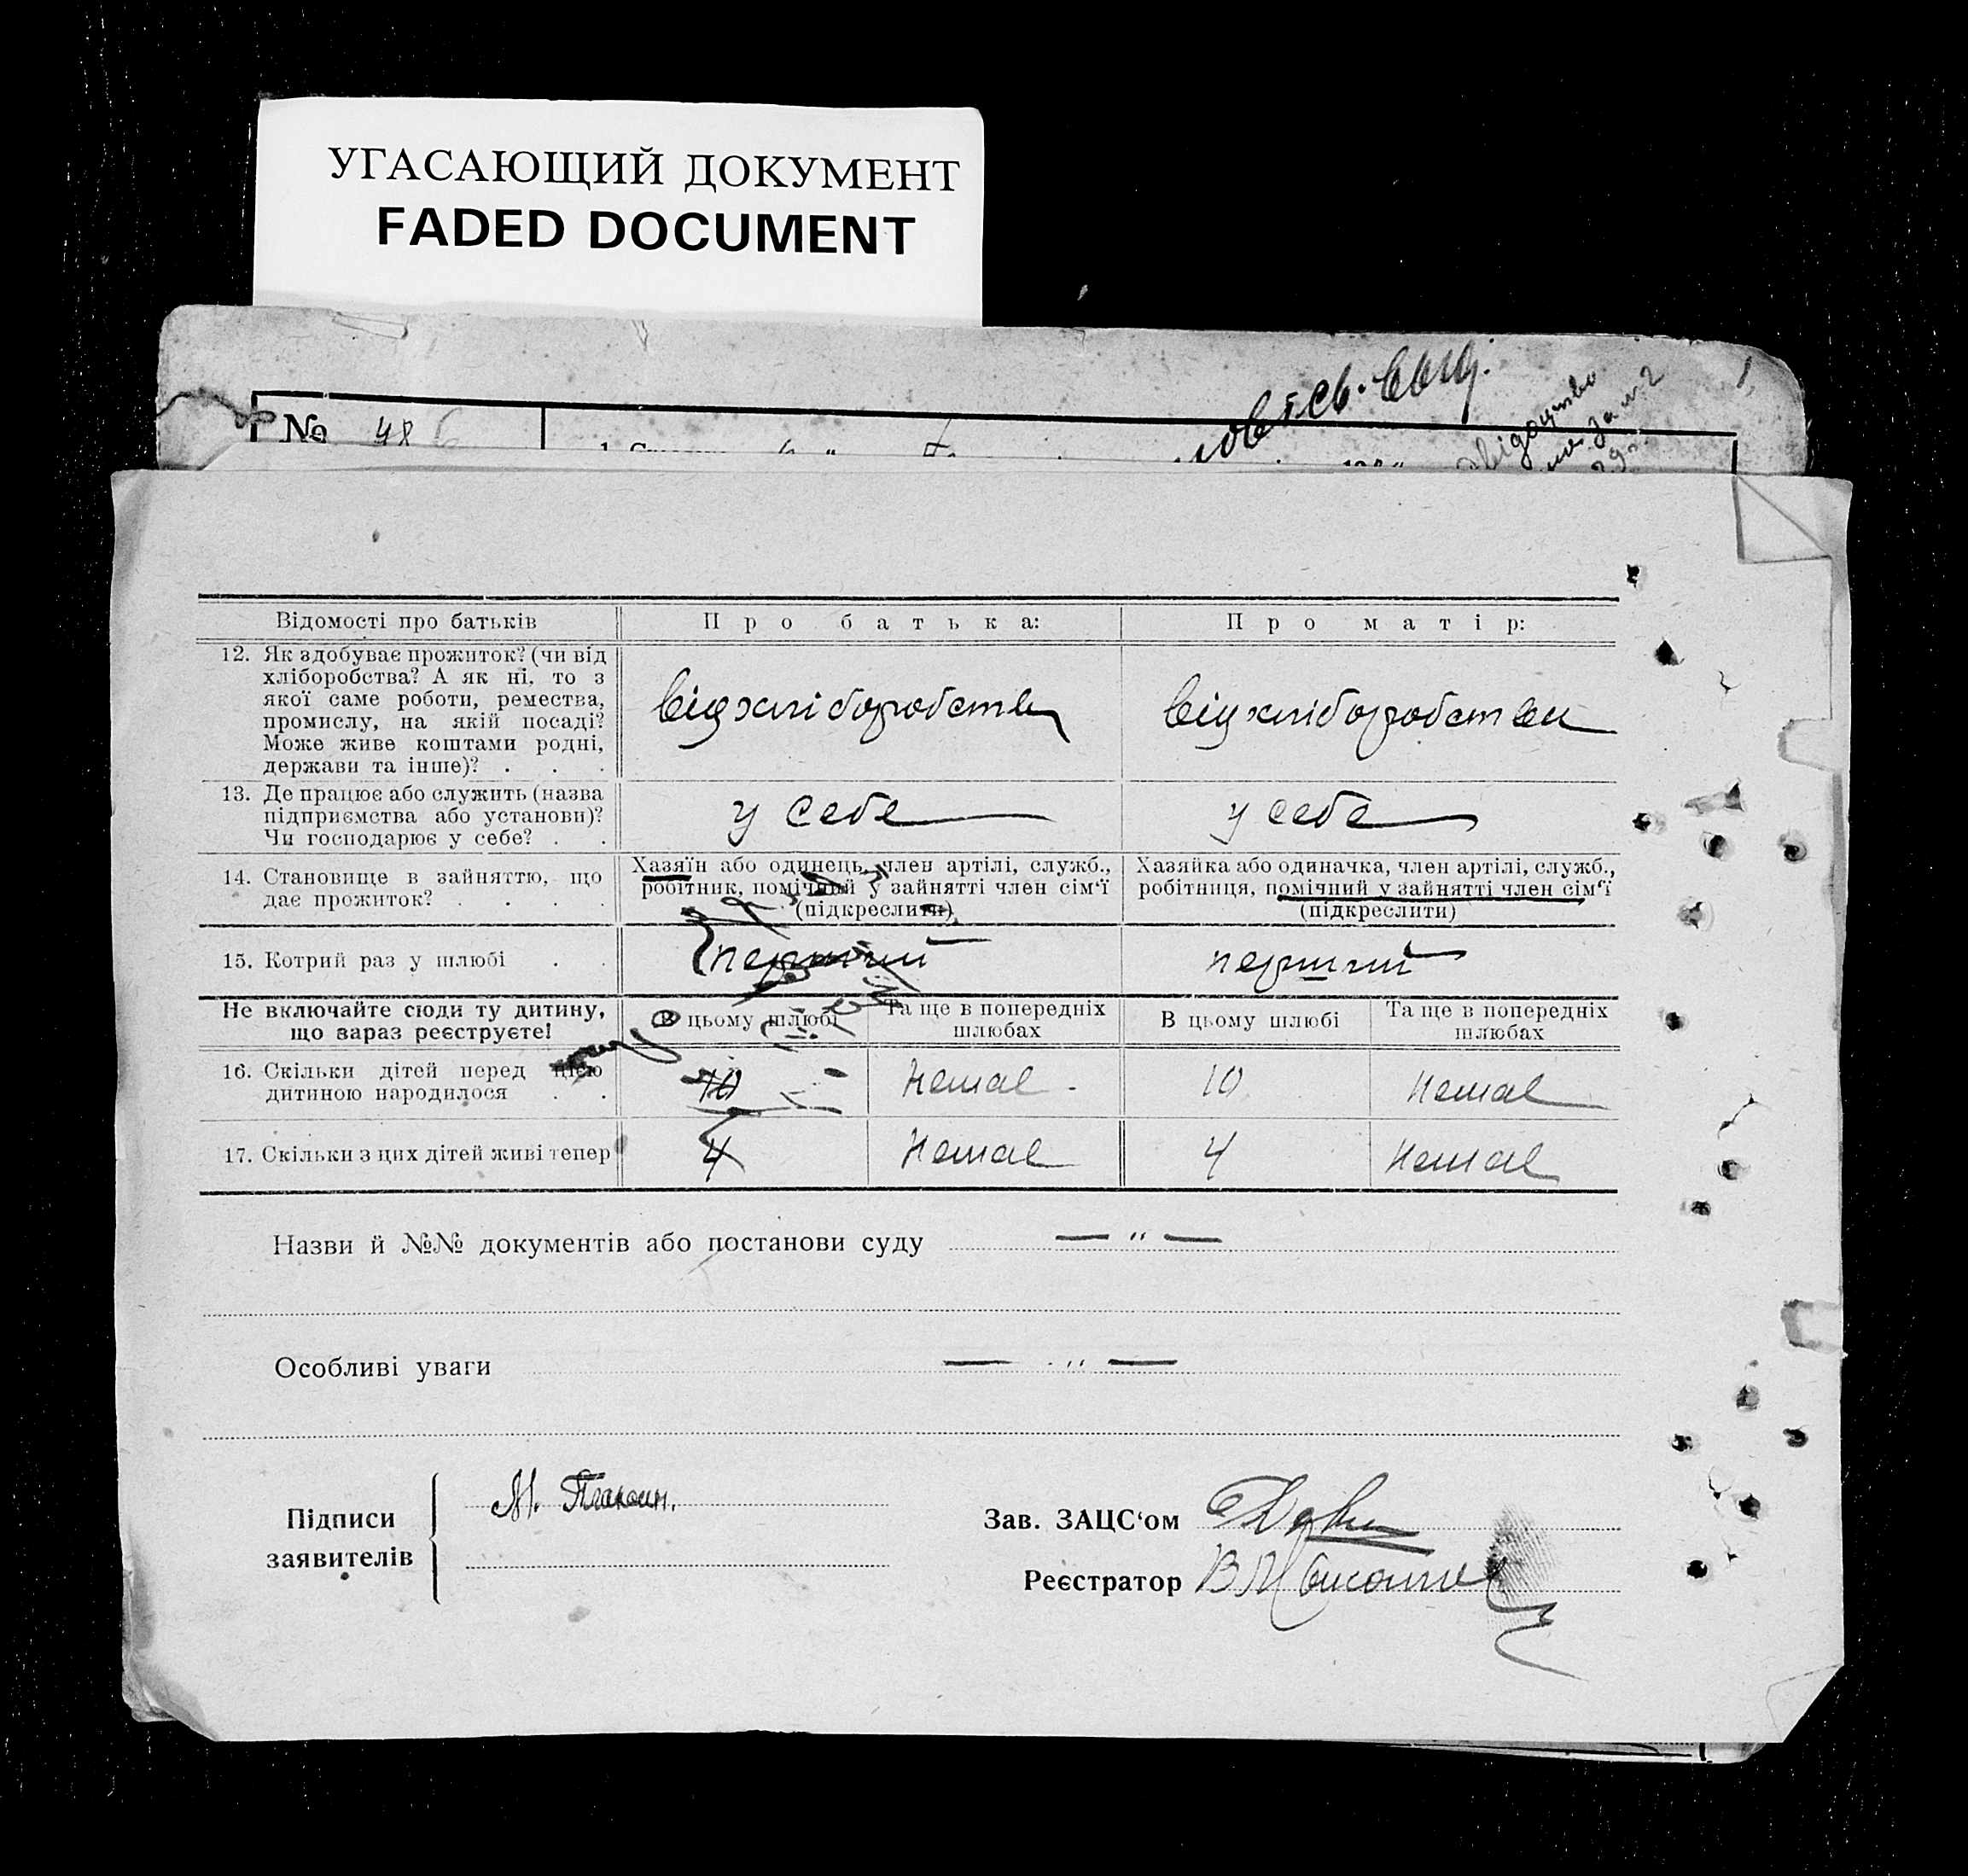 УГАСАЮЩИЙ ДОКУМЕНТ
FADED DOCUMENT
№ 48
Відомості про батьків Про батька: Про матір:
12. Як здобуває прожиток? (чи від
хліборобства? А як ні, то з
якої саме роботи, ремества,
промислу, на якій посаді?
Може живе коштами родні,
держави та інше)? . . .
від хліборобства від хліборобства
13. Де працює або служить (назва
підприємства або установи)?
Чи господарює у себе? . .
у себе у себе
14. Становище в зайняттю, що
дає прожиток? . . . .
Хазяїн або одинець, член артілі, служб.,
робітник, помічний у зайнятті член сім'ї
(підкреслити)
Хазяйка або одиначка, член артілі, служб.,
робітниця, помічний у зайнятті член сім'ї
(підкреслити)
15. Котрий раз у шлюбі . . перший перший
Не включайте сюди ту дитину,
що зараз реєструєте!
В цьому шлюбі
Та ще в попередніх
шлюбах
В цьому шлюбі
Та ще в попередніх
шлюбах
16. Скільки дітей перед цією
дитиною народилося . .
10 немає 10 немає
17. Скільки з цих дітей живі тепер 4 немає 4 немає
Назви й №№ документів або постанови суду — „ —
Особливі уваги — „ —
Підписи
заявителів
М.
Зав. ЗАЦС'ом
Реєстратор